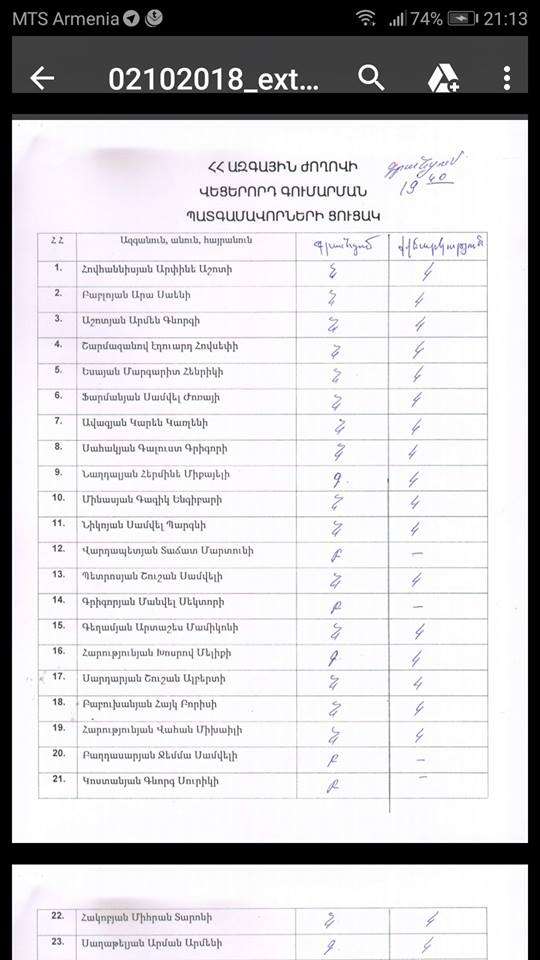 MTS Armenia 74% 21:13
02102018_ext...
ՀՀ ԱԶԳԱՅԻՆ ԺՈՂՈՎԻ գրանցում
ՎԵՑԵՐՈՐԴ ԳՈՒՄԱՐՄԱՆ 19 40
ՊԱՏԳԱՄԱՎՈՐՆԵՐԻ ՑՈՒՑԱԿ
ՀՀ Ազգանուն, անուն, հայրանուն գրանցում քվեարկություն
1. Հովհաննիսյան Արփինե Աշոտի Ն 4
2. Բաբլոյան Արա Սաենի Ն 4
3. Աշոտյան Արմեն Գևորգի Ն 4
4. Շարմազանով Էդուարդ Հովսեփի Ն 4
5. Եսայան Մարգարիտ Հենրիկի Ն 4
6. Ֆարմանյան Սամվել Ժոռայի Ն 4
7. Ավագյան Կարեն Կառլենի Ն 4
8. Սահակյան Գալուստ Գրիգորի Ն 4
9. Նաղդալյան Հերմինե Միքայելի գ. 4
10. Մինասյան Գագիկ Ենգիբարի Ն 4
11. Նիկոյան Սամվել Պարգևի Ն 4
12. Վարդապետյան Տաճատ Մարտունի բ –
13. Պետրոսյան Շուշան Սամվելի Ն 4
14. Գրիգորյան Մանվել Սեկտորի բ –
15. Գեղամյան Արտաշես Մամիկոնի Ն 4
16. Հարությունյան Խոսրով Մելիքի գ. 4
17. Սարդարյան Շուշան Ալբերտի Ն 4
18. Բաբուխանյան Հայկ Բորիսի Ն 4
19. Հարությունյան Վահան Միխաիլի Ն 4
20. Բաղդասարյան Ջեմմա Սամվելի բ –
21. Կոստանյան Գևորգ Սուրիկի բ –
22. Հակոբյան Միհրան Տարոնի Ն 4
23. Սաղաթելյան Արման Արմենի գ. 4